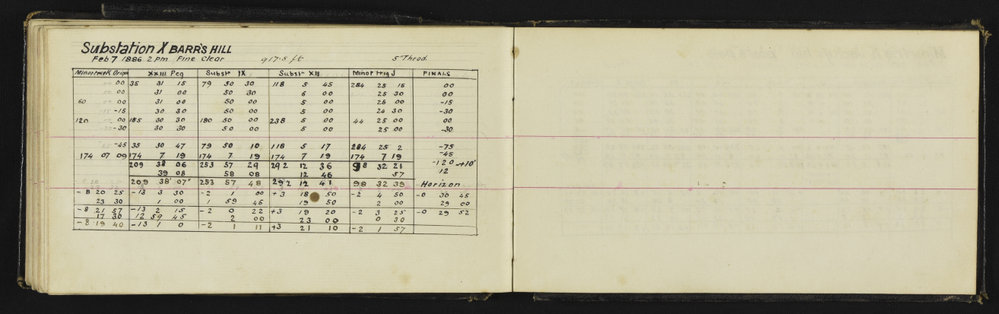 Substation X BARR'S HILL
Feb 7 1886 2 pm Fine Clear 917.5 ft 5 Thread
Minor trek Origin XXIII Peg Substn IX Substn XII Minor trig J FINALS
00 35 31 15 79 50 30 118 5 45 284 25 15 00
00 31 00 50 30 6 00 25 30 00
60 00 31 00 50 00 5 00 26 00 -15
-15 30 30 50 00 5 00 24 30 -30
120 00 185 30 30 180 50 00 238 5 00 44 25 00 00
-30 30 30 50 00 5 00 25 00 -30
-45 35 30 47 79 50 10 118 5 17 284 25 2 -75
174 07 09 174 7 19 174 7 19 174 7 19 174 7 19 -45
209 38 06 253 57 29 292 12 36 98 32 21 -120 +10"
39 08 58 08 12 46 57 12
209 38' 07" 253 57 48 292 12 41 98 32 39 Horizon
-8 20 25 -13 3 30 -2 1 00 +3 18 50 -2 4 50 -0 30 45
23 30 1 00 1 59 45 19 50 2 00 29 00
-8 21 57 -13 2 15 -2 0 22 +3 19 20 -2 3 25 -0 29 52
17 30 12 59 45 2 00 23 00 0 30
-8 19 40 -13 1 0 -2 1 11 +3 21 10 -2 1 57